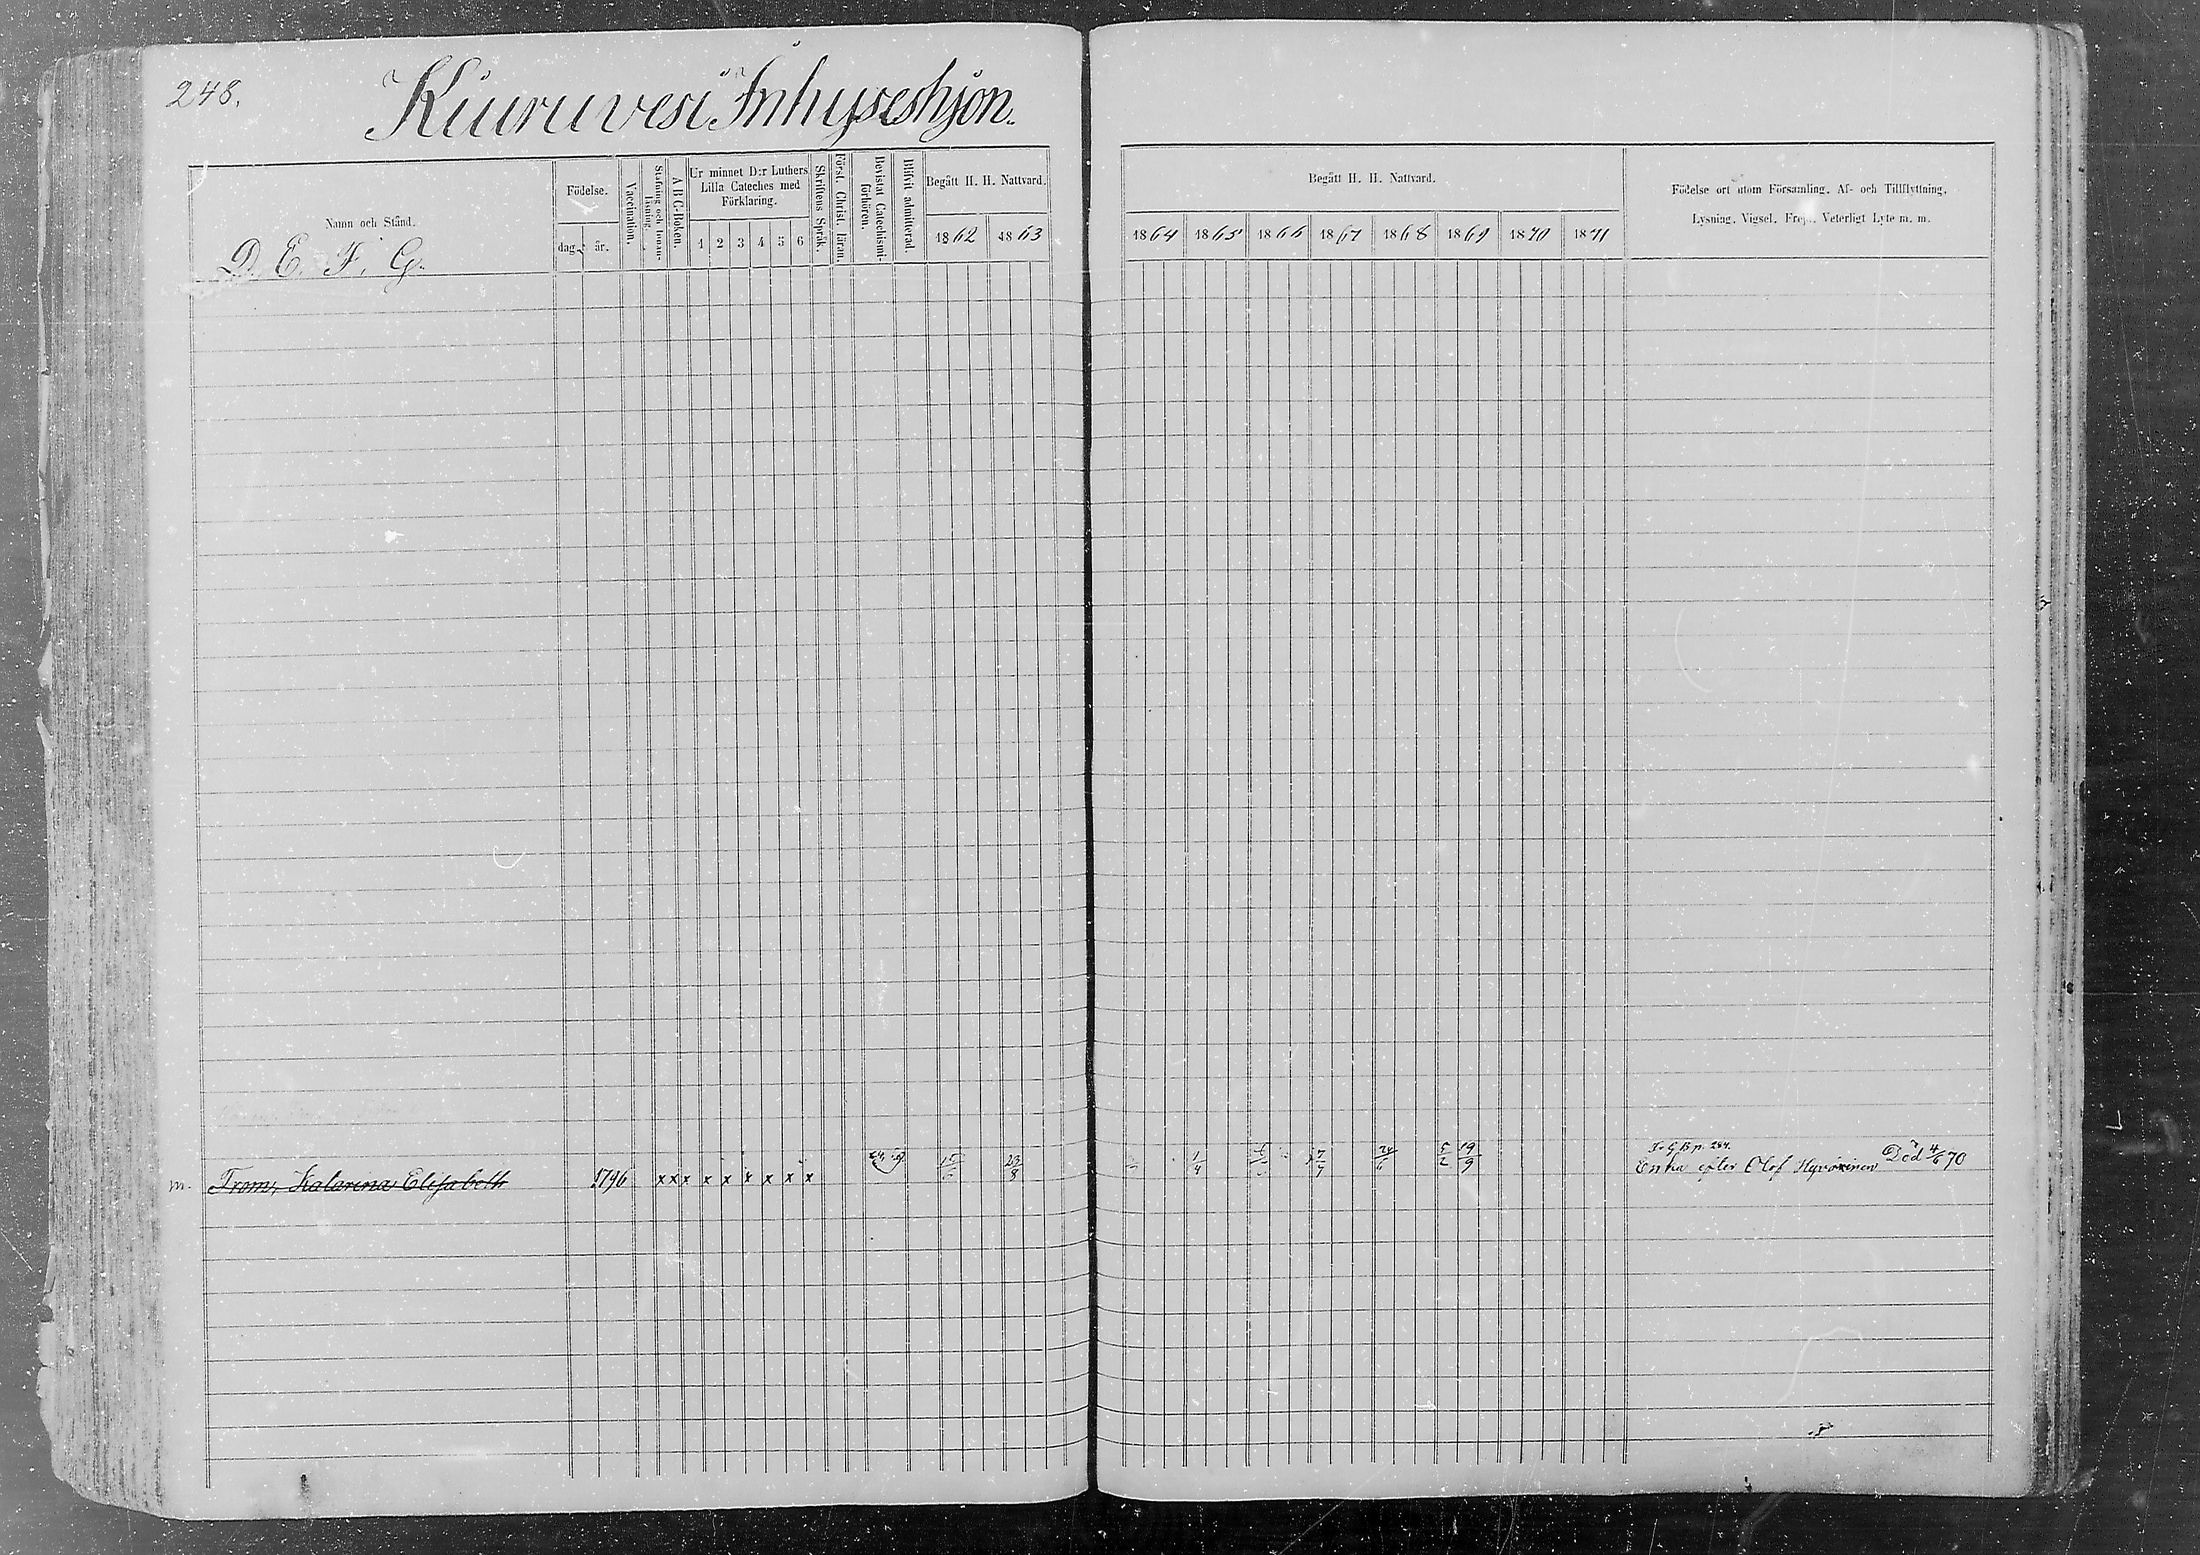 248.
Kiuruvesi Inhyseshjon.
Namn och Stånd.
D. E. F. G.
Födelse.
dag. år.
Vaccination.
Stafning och Innanläsning.
A B C-Boken.
Ur minnet D:r Luthers
Lilla Cateches med
Förklaring.
1 2 3 4 5 6
Skriftens Språk.
Först. Christ. läran.
Bevistat Catechismi-
förhören.
Blifvit admitterad.
Begått H. H. Nattvard.
1862 1863
Begått H. H. Nattvard.
1864 1865 1866 1867 1868 1869 1870 1871
Födelse ort utom Församling. Af- och Tillflyttning.
Lysning. Vigsel. Frejd. Veterligt Lyte m. m.
m. Trom, Katarina Elisabeth 1796 x x x x x x x x x 23/8 1/4 7/7 24/6 5/2 19/9
Fr. G. B. p. 284.
Enka efter Olof Hyvärinen Död 4/6 70